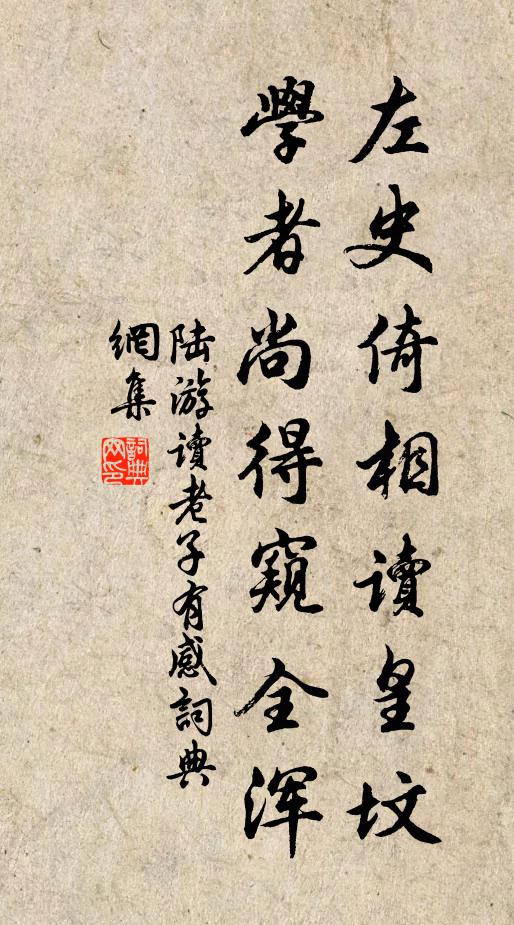 左史倚相讀皇墳
學者尚得窺全渾
陆游讀老子有感詞典
網集
詞典网印